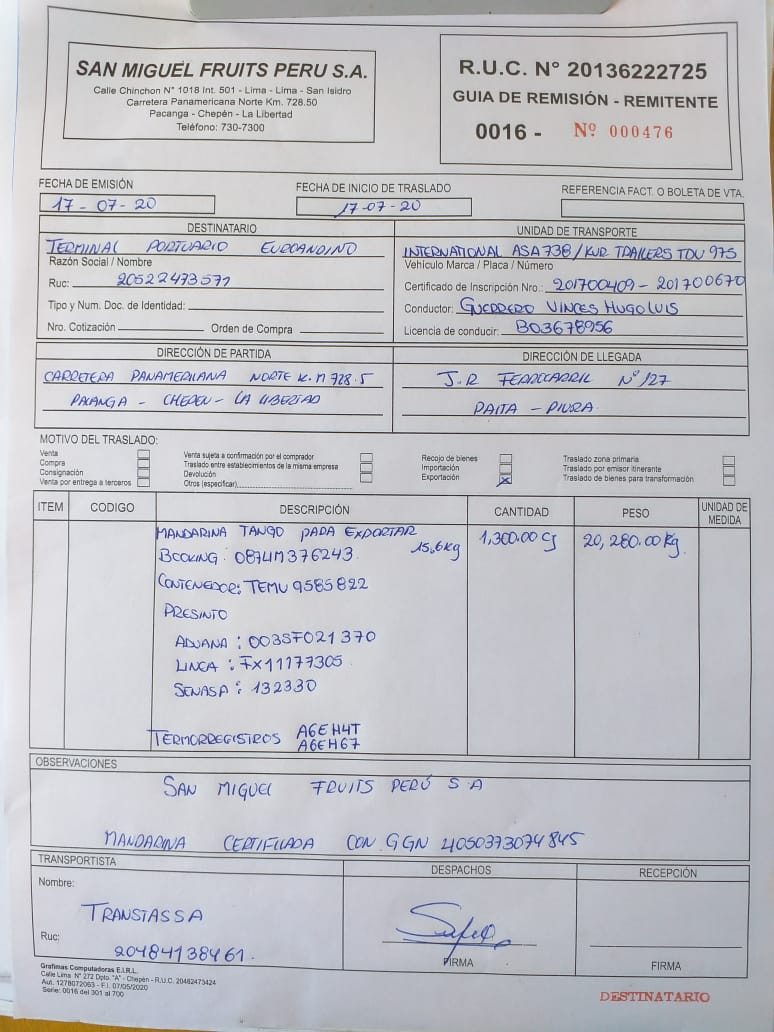 SAN MIGUEL FRUITS PERU S.A.
Calle Chinchon N° 1018 Int. 501 - Lima - Lima - San Isidro
Carretera Panamericana Norte Km. 728.50
Pacanga - Chepén - La Libertad
Teléfono: 730-7300
R.U.C. N° 20136222725
GUIA DE REMISIÓN - REMITENTE
0016 - Nº 000476
FECHA DE EMISIÓN
17-07-20
FECHA DE INICIO DE TRASLADO
17-07-20
REFERENCIA FACT. O BOLETA DE VTA.
DESTINATARIO
TERMINAL PORTUARIO EUROANDINO
Razón Social / Nombre
Ruc: 20522473571
Tipo y Num. Doc. de Identidad:
Nro. Cotización Orden de Compra
UNIDAD DE TRANSPORTE
INTERNATIONAL ASA738/KUR TRAILERS TDU 975
Vehículo Marca / Placa / Número
Certificado de Inscripción Nro.: 201700409 - 201700670
Conductor: GUERRERO VINCES HUGO LUIS
Licencia de conducir: B03678956
DIRECCIÓN DE PARTIDA
CARRETERA PANAMERICANA NORTE K.M 728.5
PACANGA - CHEPEN - LA LIBERTAD
DIRECCIÓN DE LLEGADA
J.R FERROCARRIL N° 127
PAITA - PIURA
MOTIVO DEL TRASLADO:
Venta
Compra
Consignación
Venta por entrega a terceros
Venta sujeta a confirmación por el comprador
Traslado entre establecimientos de la misma empresa
Devolución
Otros (especificar)
Recojo de bienes
Importación
Exportación X
Traslado zona primaria
Traslado por emisor itinerante
Traslado de bienes para transformación
ITEM CODIGO DESCRIPCIÓN CANTIDAD PESO UNIDAD DE MEDIDA
MANDARINA TANGO PARA EXPORTAR 1,300.00 CJ 20,280.00 Kg
BOOKING: 0874M376243 15.6kg
CONTENEDOR: TEMU 9585822
PRESINTO
ADUANA: 003SF021370
LINEA: FX11177305
SENASA: 132330
TERMORREGISTROS A6EH4T
A6EH67
OBSERVACIONES
SAN MIGUEL FRUITS PERÚ S A
MANDARINA CERTIFICADA CON GGN 4050373074845
TRANSPORTISTA
Nombre:
TRANSTASSA
Ruc:
20484138461.
DESPACHOS
FIRMA
RECEPCIÓN
FIRMA
Grafimas Computadoras E.I.R.L.
Calle Lima N° 272 Dpto. "A" - Chepén - R.U.C. 20482473424
Aut. 1278072063 - F.I. 07/05/2020
Serie: 0016 del 301 al 700
DESTINATARIO